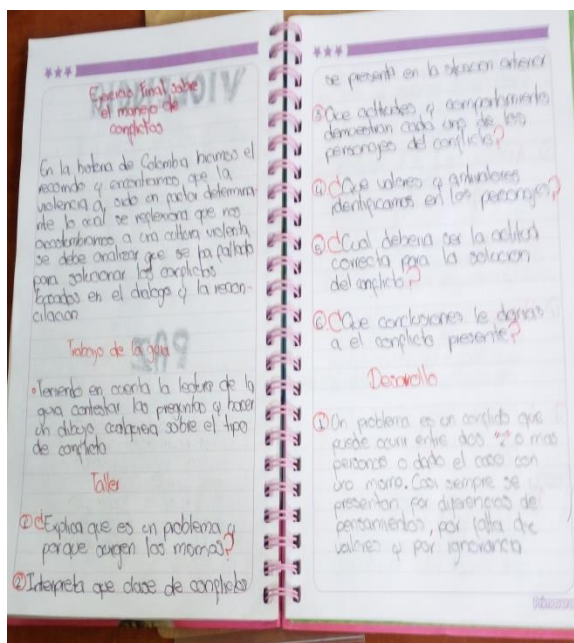 Ejercicio final sobre
el manejo de
conflictos
En la historia de Colombia hicimos el
recorrido y encontramos que la
violencia a sido en factor determina-
nte lo cual se reflexiona que nos
acostumbramos a una cultura violenta,
se debe analizar que se ha fallado
para solucionar los conflictos
Basados en el dialogo y la recon-
ciliacion
Trabajo de la guia
• Teniendo en cuenta la lectura de la
guia contestar las preguntas y hacer
un dibujo cualquiera sobre el tipo
de conflicto
Taller
① ¿Explica que es un problema y
porque surgen los mismos?
② Interpreta que clase de conflictos
se presenta en la situacion anterior
③ Que actitudes y comportamiento
demuestran cada uno de los
personajes del conflicto?
④ ¿Que valores y antivalores
identificamos en los personajes?
⑤ ¿Cual deberia ser la actitud
correcta para la solucion
del conflicto?
⑥ ¿Que conclusiones le darias
a el conflicto presente?
Desarrollo
① Un problema es un conflicto que
puede ocurrir entre dos "2" o mas
personas o dado el caso con
uno mismo. Casi siempre se
presentan, por diferencias de
pensamientos, por falta de
valores y por ignorancia